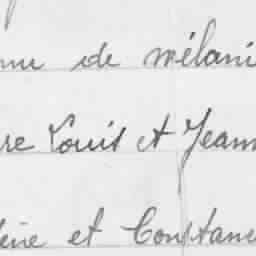 de mélani
re Louis et Jeann
et Constanc